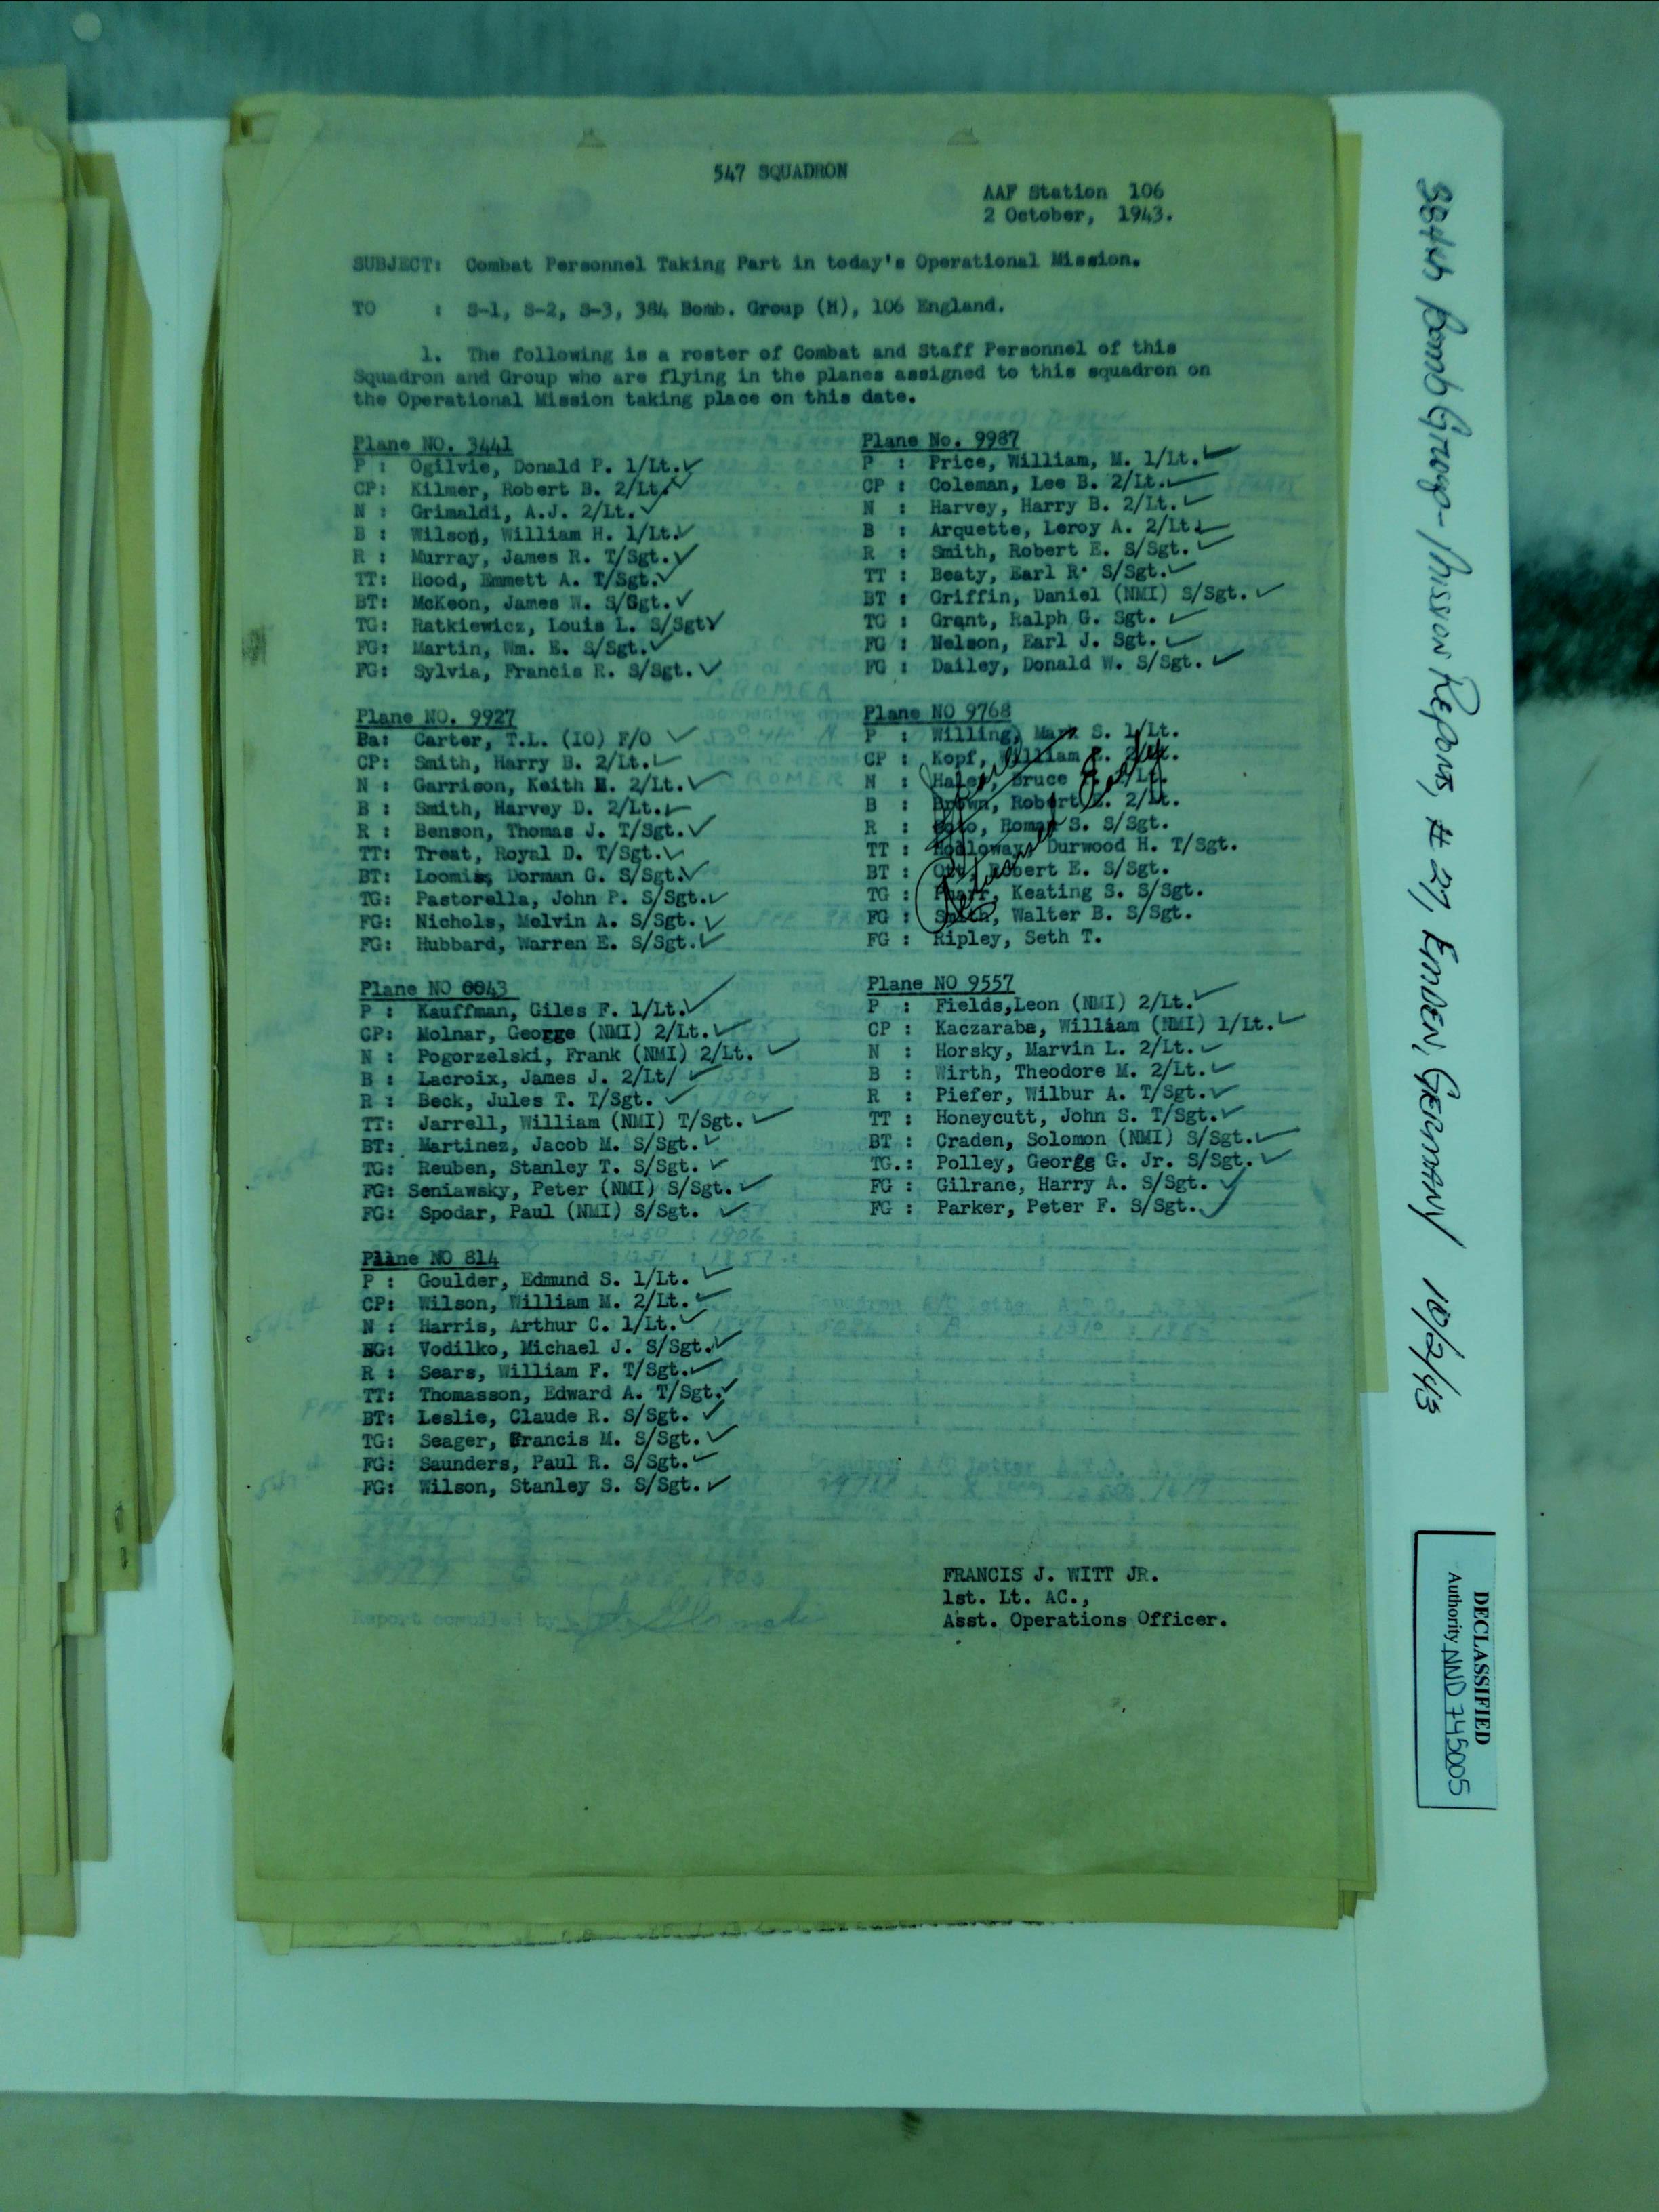 547 SQUADRON
AAF Station 106
2 October, 1943.
SUBJECT: Combat Personnel Taking Part in today's Operational Mission.
TO : S-1, S-2, S-3, 384 Bomb. Group (H), 106 England.
1. The following is a roster of Combat and Staff Personnel of this
Squadron and Group who are flying in the planes assigned to this squadron on
the Operational Mission taking place on this date.
Plane NO. 3441
P : Ogilvie, Donald P. 1/Lt.
CP: Kilmer, Robert B. 2/Lt.
N : Grimaldi, A.J. 2/Lt.
B : Wilson, William H. 1/Lt.
R : Murray, James R. T/Sgt.
TT: Hood, Emmett A. T/Sgt.
BT: McKeon, James W. S/Sgt.
TG: Ratkiewicz, Louis L. S/Sgt
FG: Martin, Wm. E. S/Sgt.
FG: Sylvia, Francis R. S/Sgt.
Plane No. 9987
P : Price, William, M. 1/Lt.
CP : Coleman, Lee B. 2/Lt.
N : Harvey, Harry B. 2/Lt.
B : Arquette, Leroy A. 2/Lt.
R : Smith, Robert E. S/Sgt.
TT : Beaty, Earl R. S/Sgt.
BT : Griffin, Daniel (NMI) S/Sgt.
TG : Grant, Ralph G. Sgt.
FG : Nelson, Earl J. Sgt.
FG : Dailey, Donald W. S/Sgt.
Plane NO. 9927
Ba: Carter, T.L. (IO) F/O
CP: Smith, Harry B. 2/Lt.
N : Garrison, Keith M. 2/Lt.
B : Smith, Harvey D. 2/Lt.
R : Benson, Thomas J. T/Sgt.
TT: Treat, Royal D. T/Sgt.
BT: Loomis, Dorman G. S/Sgt.
TG: Pastorella, John P. S/Sgt.
FG: Nichols, Melvin A. S/Sgt.
FG: Hubbard, Warren E. S/Sgt.
Plane NO 9768
P : Willing, Mark S. 1/Lt.
CP : Kopf, William 2/Lt.
N : Bruce
B : Brown, Robert 2/Lt.
R : Roman S. S/Sgt.
TT : Holloway, Durwood H. T/Sgt.
BT : Robert E. S/Sgt.
TG : Keating S. S/Sgt.
FG : Smith, Walter B. S/Sgt.
FG : Ripley, Seth T.
Returned Early
Plane NO 0043
P : Kauffman, Giles F. 1/Lt.
CP: Molnar, George (NMI) 2/Lt.
N : Pogorzelski, Frank (NMI) 2/Lt.
B : Lacroix, James J. 2/Lt/
R : Beck, Jules T. T/Sgt.
TT: Jarrell, William (NMI) T/Sgt.
BT: Martinez, Jacob M. S/Sgt.
TG: Reuben, Stanley T. S/Sgt.
FG: Seniawsky, Peter (NMI) S/Sgt.
FG: Spodar, Paul (NMI) S/Sgt.
Plane NO 9557
P : Fields,Leon (NMI) 2/Lt.
CP : Kaczaraba, William (NMI) 1/Lt.
N : Horsky, Marvin L. 2/Lt.
B : Wirth, Theodore M. 2/Lt.
R : Piefer, Wilbur A. T/Sgt.
TT : Honeycutt, John S. T/Sgt.
BT : Craden, Solomon (NMI) S/Sgt.
TG.: Polley, George G. Jr. S/Sgt.
FG : Gilrane, Harry A. S/Sgt.
FG : Parker, Peter F. S/Sgt.
Plane NO 814
P : Goulder, Edmund S. 1/Lt.
CP: Wilson, William M. 2/Lt.
N : Harris, Arthur C. 1/Lt.
NG: Vodilko, Michael J. S/Sgt.
R : Sears, William F. T/Sgt.
TT: Thomasson, Edward A. T/Sgt.
BT: Leslie, Claude R. S/Sgt.
TG: Seager, Francis M. S/Sgt.
FG: Saunders, Paul R. S/Sgt.
FG: Wilson, Stanley S. S/Sgt.
FRANCIS J. WITT JR.
1st. Lt. AC.,
Asst. Operations Officer.
Report compiled by
384th Bomb Group - Mission Reports, # 27, EMDEN, GERMANY 10/2/43
DECLASSIFIED
Authority NND 745005